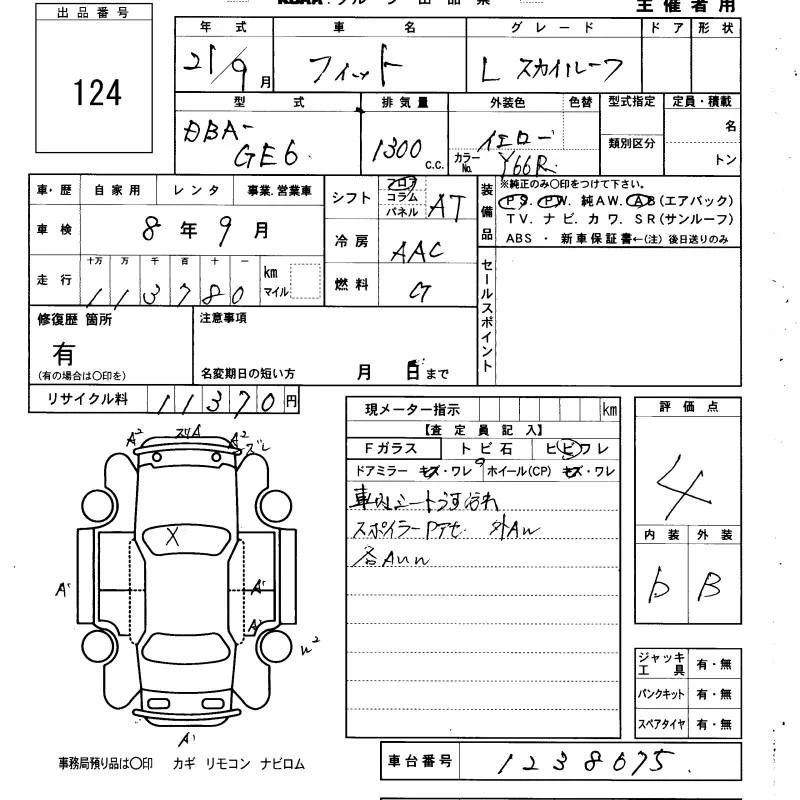 主催者用
出品番号
124
年式 車名 グレード ドア 形状
21/9月 フィット L スカイルーフ
型式 排気量 外装色 色替 型式指定 定員・積載
DBA-GE6 1300c.c. イエロー 名
カラーNo. Y66R 類別区分 トン
車・歴 自家用 レンタ 事業.営業車
車検 8年9月
走行 十万 万 千 百 十 一
113780 km マイル
シフト フロア コラム パネル AT
冷房 AAC
燃料 G
装備品 ※純正のみ○印をつけて下さい。
PS. PW. 純AW. AB(エアバック)
TV. ナビ. カワ. SR(サンルーフ)
ABS ・ 新車保証書←(注) 後日送りのみ
セールスポイント
修復歴 箇所
有
(有の場合は○印を)
注意事項
名変期日の短い方 月 日まで
リサイクル料 11370円
現メーター指示 km
【査定員記入】
Fガラス トビ石 ヒビワレ
ドアミラー キズ・ワレ ホイール(CP) キズ・ワレ
車内シートうす汚れ
スポイラーPアセ 外AW
各AUU
評価点
4
内装 外装
b B
ジャッキ工具 有・無
パンクキット 有・無
スペアタイヤ 有・無
A² スリA A² ズレ
X
A¹ A¹
A²
W²
A¹
事務局預り品は○印 カギ リモコン ナビロム
車台番号 1238675